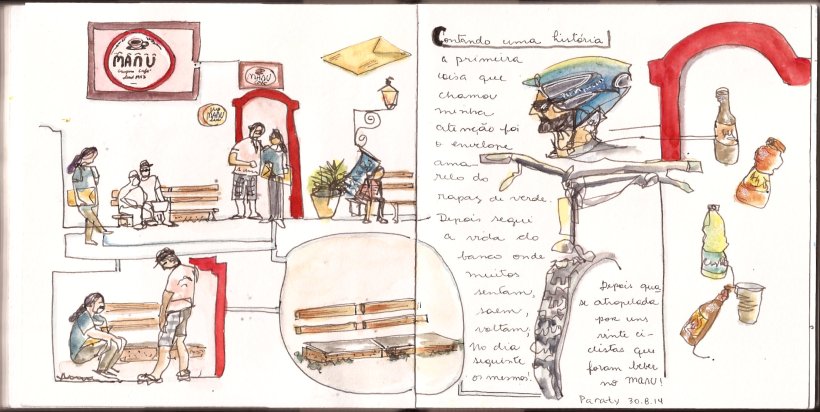 MANU
MANU
MANU
Contando uma história
a primeira
coisa que
chamou
minha
atenção foi
o envelope
ama
relo do
rapaz de verde.
Depois segui
a vida do
banco onde
muitos
sentam,
saem,
voltam,
No dia
seguinte
os mesmos!
Depois quase
se atropelada
por uns
vinte ci-
clistas que
foram beber
no MANU!
Paraty 30.8.14